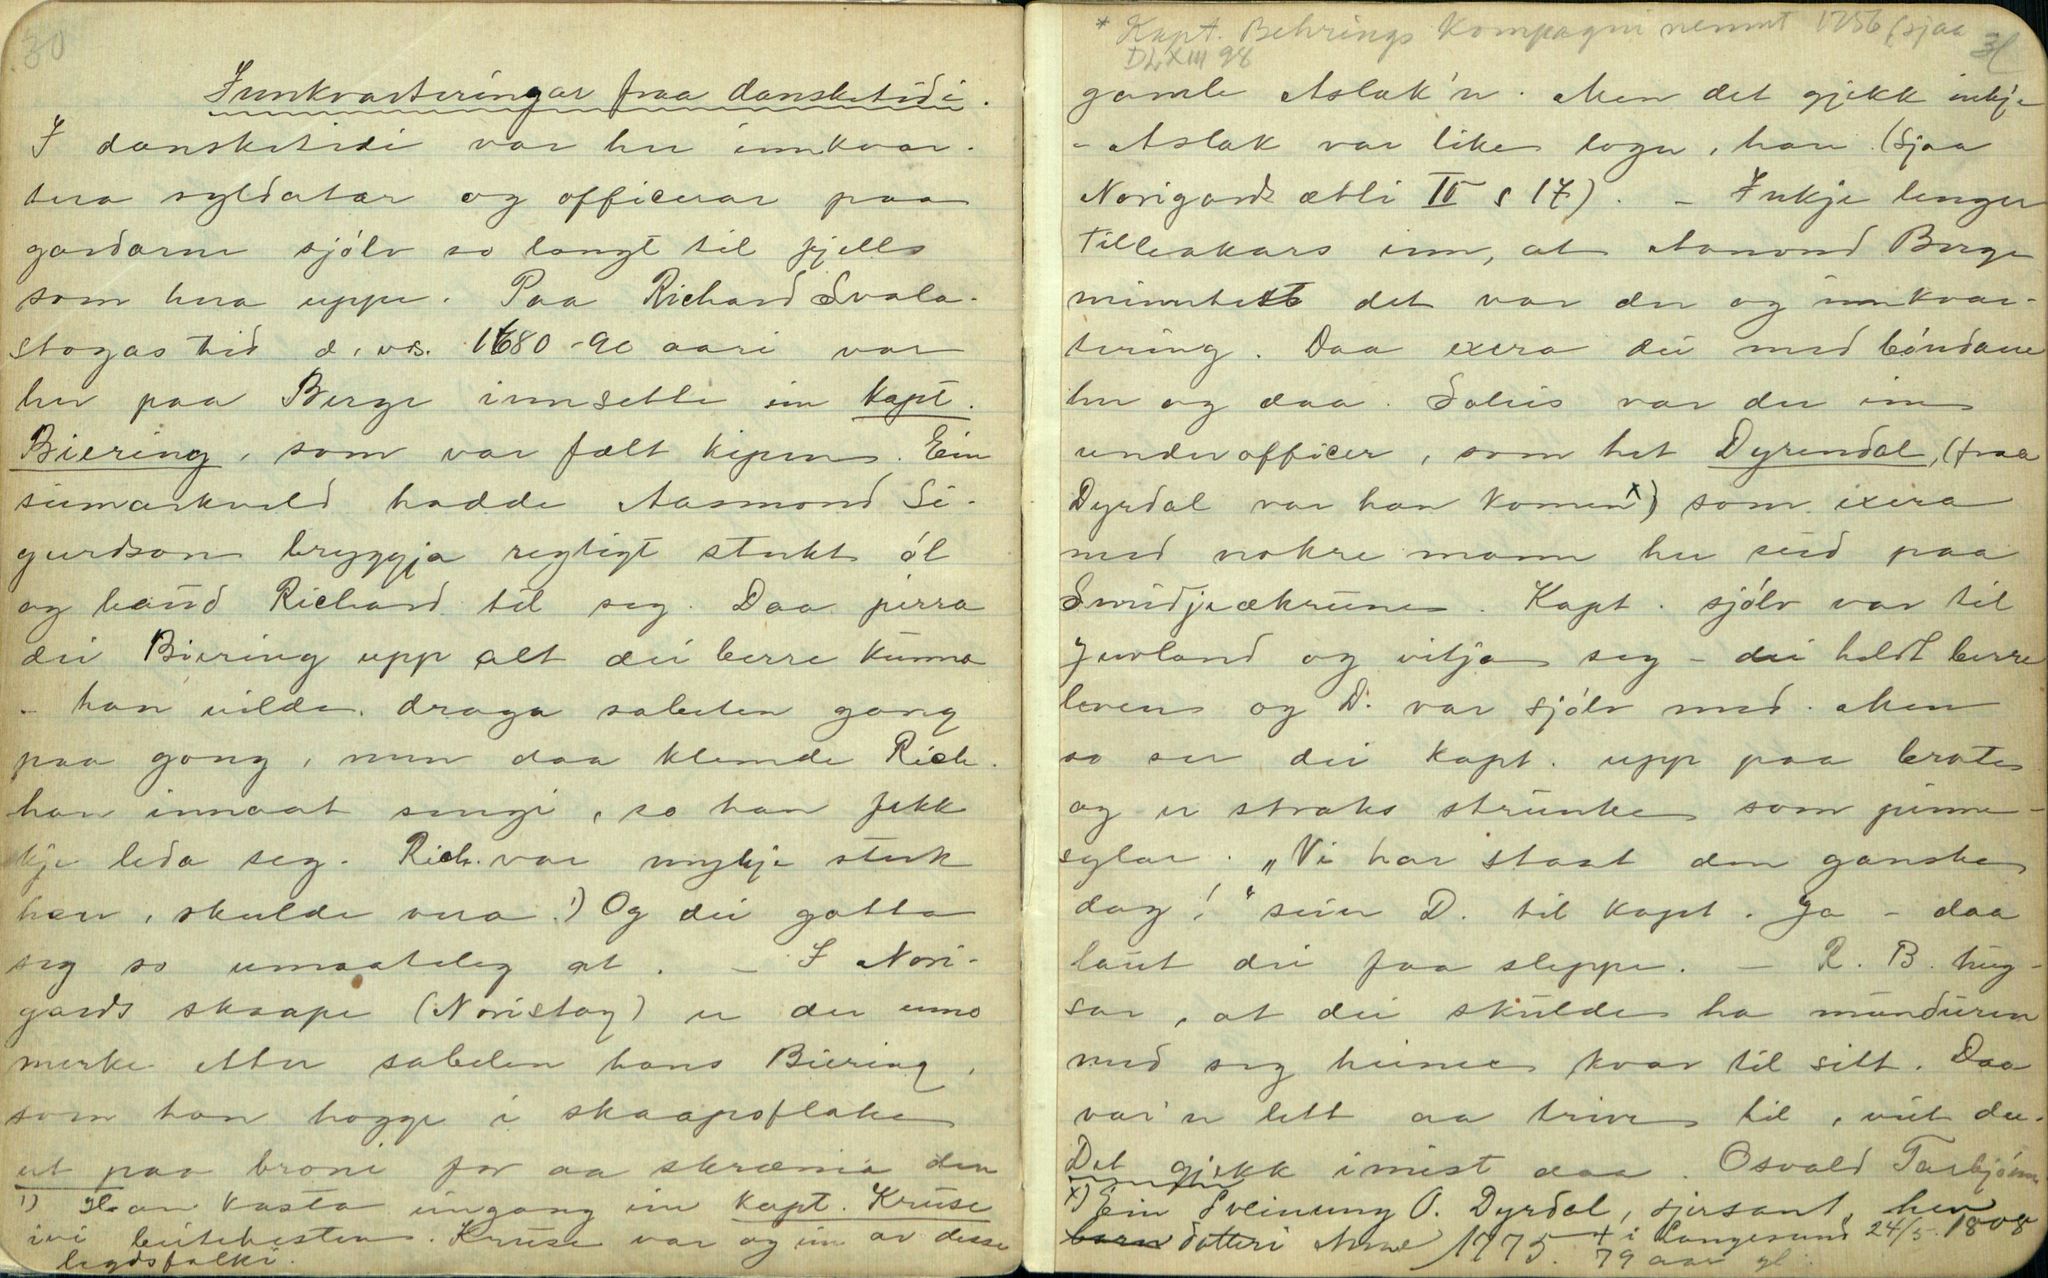 30
Innkvarteringar fraa dansketidi.
I dansketidi var her innkvar-
tera syldatar og officerar paa
gardarne sjølv so langt til fjells
som hera uppe. Paa Richard Svala-
stogas tid d. v. s. 1680-90 aari var
her paa Berge innsette ein Kapt.
Biering, som var fælt kipen. Ein
sumarkveld hadde Aasmond Si-
gurdson bryggja regtigt sterkt øl
og baud Richard til seg. Daa pirra
dei Biering upp alt dei berre kunna
- han vilde draga sabelen gong
paa gong, men daa klemde Rich.
han innaat sengi, so han fekk
kje leda seg. Rich. var mykje sterk
kar, skulde vera.¹) Og dei gotta
seg so umaateleg at. - I Nori-
gards skaape (Noristog) er der eino
merke etter sabelen hans Biering,
som han hogge i skaapsflake
ut paa broni for aa skræma den
1) Han kasta eingong ein Kapt. Kruse
ivi beitehesten. Kruse var og ein av desse
legdsfolki.
* Kapt. Behrings Kompagni nemnt 1756 (sjaa
DL XIII 98
31
gamle Aslak'n. Men det gjekk inkje
- Aslak var like logn, han. (Sjaa
Norigards ætti II s 17). - Inkje lenger
tilbakars inn, at Aamond Berge
minntest det var der og innkvar-
tering. Daa exera dei med bøndane
her og daa. Soleis var der ein
underofficer, som het Dyrendal, (fraa
Dyrdal var han komen x) som exera
med nokre mann her sud paa
Smidjeækrune. Kapt. sjølv var til
Juvland og vitja seg - dei heldt berre
leven og D. var sjølv med. Men
so ser dei kapt. upp paa brote
og er straks strunke som pinne-
sylar. "Vi har staat den ganske
dag!" seier D. til kapt. Ja - daa
laut dei faa sleppe. - R. B. hug-
sar, at dei skulde ha munduren
med seg heime kvar til sitt. Daa
var'n lett aa trive til, veit du.
Det gjekk i mist daa. Osvald Tarbjønn
x) Ein Sveinung O. Dyrdal, sjersant, her
dotteri Anne 1775. + i Langesund 24/5 1808
79 aar gl.